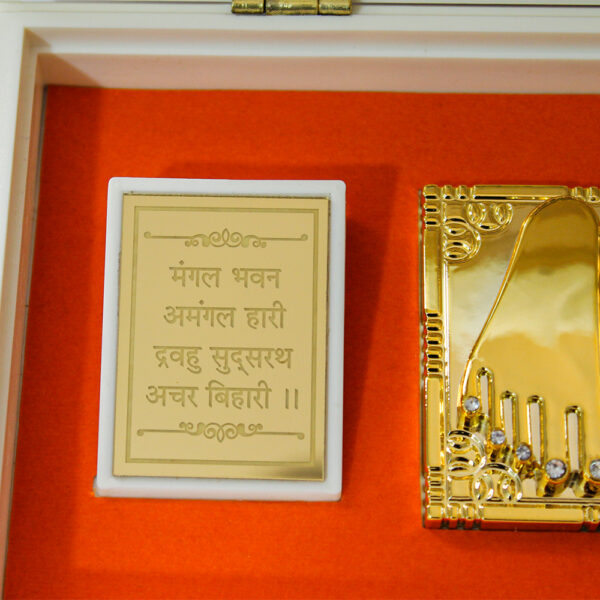 मंगल भवन
अमंगल हारी
द्रवहु सुद्सरथ
अचर बिहारी ।।